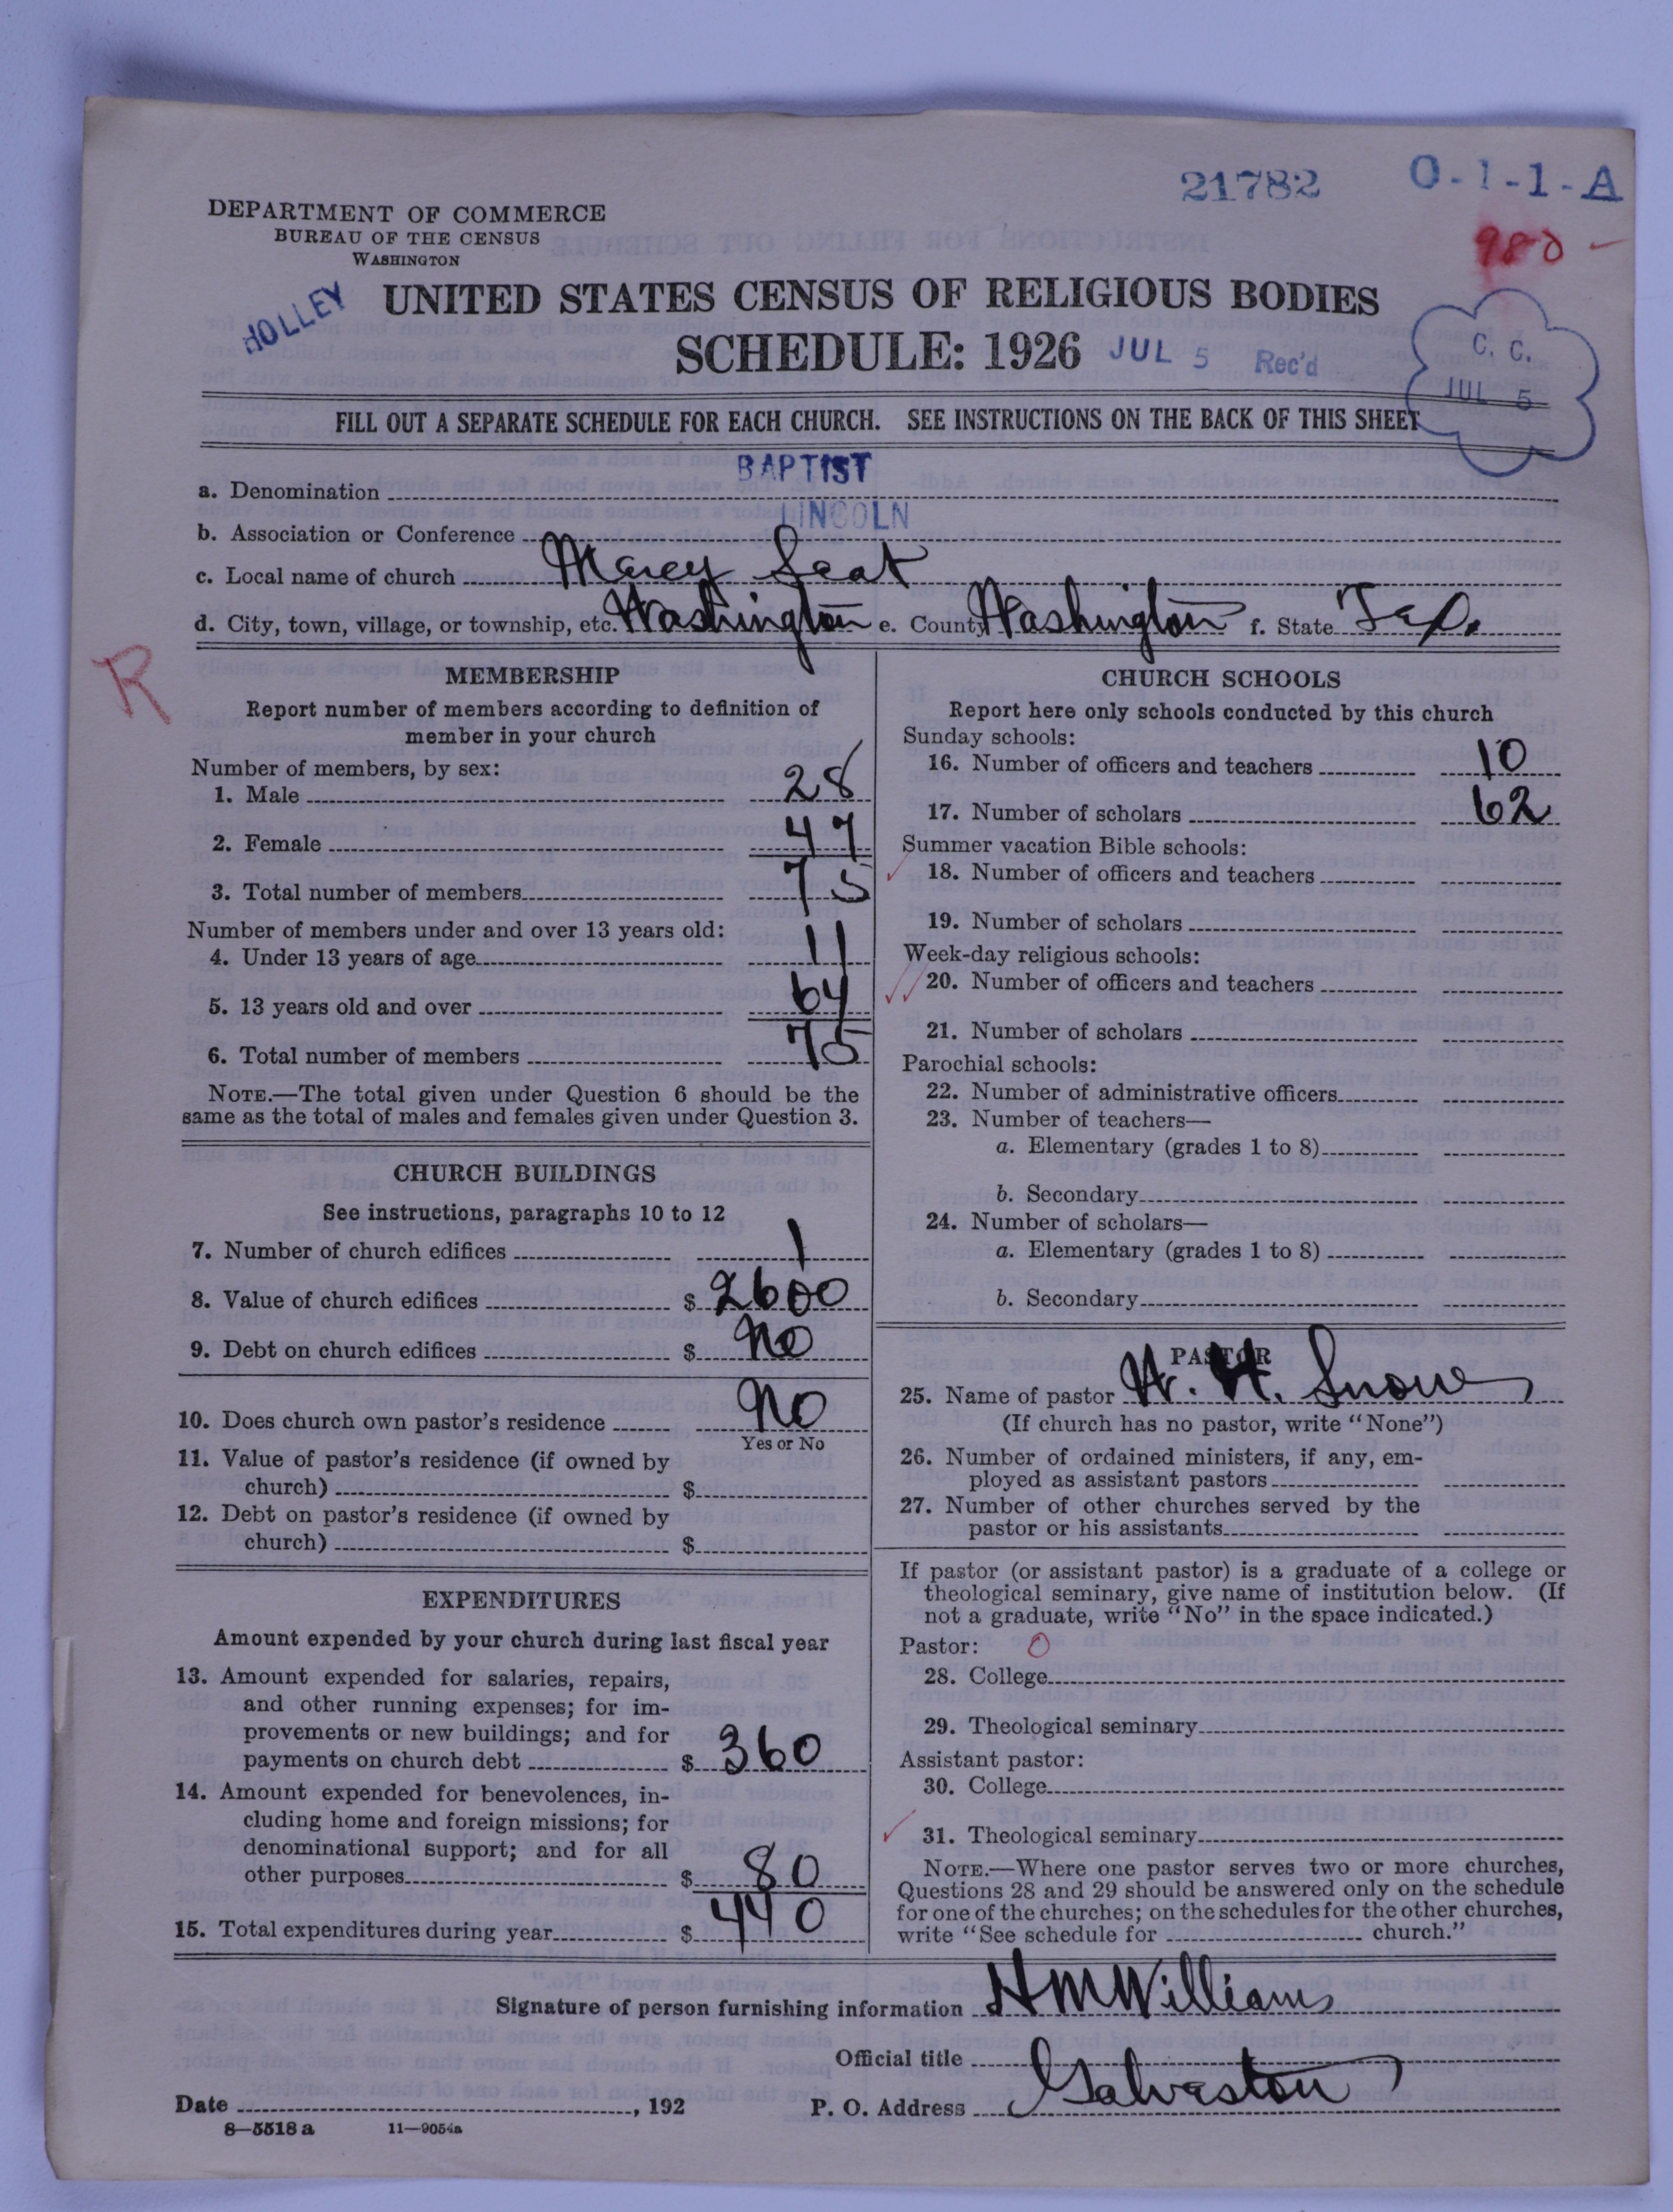 21782 O-1-1-A
DEPARTMENT OF COMMERCE
BUREAU OF THE CENSUS
WASHINGTON
980
HOLLEY
UNITED STATES CENSUS OF RELIGIOUS BODIES
SCHEDULE: 1926 JUL 5 Rec'd
C. C.
JUL 5
FILL OUT A SEPARATE SCHEDULE FOR EACH CHURCH. SEE INSTRUCTIONS ON THE BACK OF THIS SHEET
a. Denomination BAPTIST
b. Association or Conference LINCOLN
c. Local name of church Mercy Seat
d. City, town, village, or township, etc. Washington e. County Washington f. State Tex.
R
MEMBERSHIP
Report number of members according to definition of
member in your church
Number of members, by sex:
1. Male 28
2. Female 47
3. Total number of members 75
Number of members under and over 13 years old:
4. Under 13 years of age 11
5. 13 years old and over 64
6. Total number of members 75
NOTE.—The total given under Question 6 should be the
same as the total of males and females given under Question 3.
CHURCH BUILDINGS
See instructions, paragraphs 10 to 12
7. Number of church edifices 1
8. Value of church edifices $ 2600
9. Debt on church edifices $ No
10. Does church own pastor's residence No
Yes or No
11. Value of pastor's residence (if owned by
church) $
12. Debt on pastor's residence (if owned by
church) $
EXPENDITURES
Amount expended by your church during last fiscal year
13. Amount expended for salaries, repairs,
and other running expenses; for im-
provements or new buildings; and for
payments on church debt $ 360
14. Amount expended for benevolences, in-
cluding home and foreign missions; for
denominational support; and for all
other purposes $ 80
15. Total expenditures during year $ 440
CHURCH SCHOOLS
Report here only schools conducted by this church
Sunday schools:
16. Number of officers and teachers 10
17. Number of scholars 62
Summer vacation Bible schools:
18. Number of officers and teachers
19. Number of scholars
Week-day religious schools:
20. Number of officers and teachers
21. Number of scholars
Parochial schools:
22. Number of administrative officers
23. Number of teachers—
a. Elementary (grades 1 to 8)
b. Secondary
24. Number of scholars—
a. Elementary (grades 1 to 8)
b. Secondary
PASTOR
25. Name of pastor H. H. Snow
(If church has no pastor, write "None")
26. Number of ordained ministers, if any, em-
ployed as assistant pastors
27. Number of other churches served by the
pastor or his assistants
If pastor (or assistant pastor) is a graduate of a college or
theological seminary, give name of institution below. (If
not a graduate, write "No" in the space indicated.)
Pastor: 0
28. College
29. Theological seminary
Assistant pastor:
30. College
31. Theological seminary
NOTE.—Where one pastor serves two or more churches,
Questions 28 and 29 should be answered only on the schedule
for one of the churches; on the schedules for the other churches,
write "See schedule for church."
Signature of person furnishing information H M Williams
Official title
Date , 192 P. O. Address Galveston
8—5518 a 11—9054a